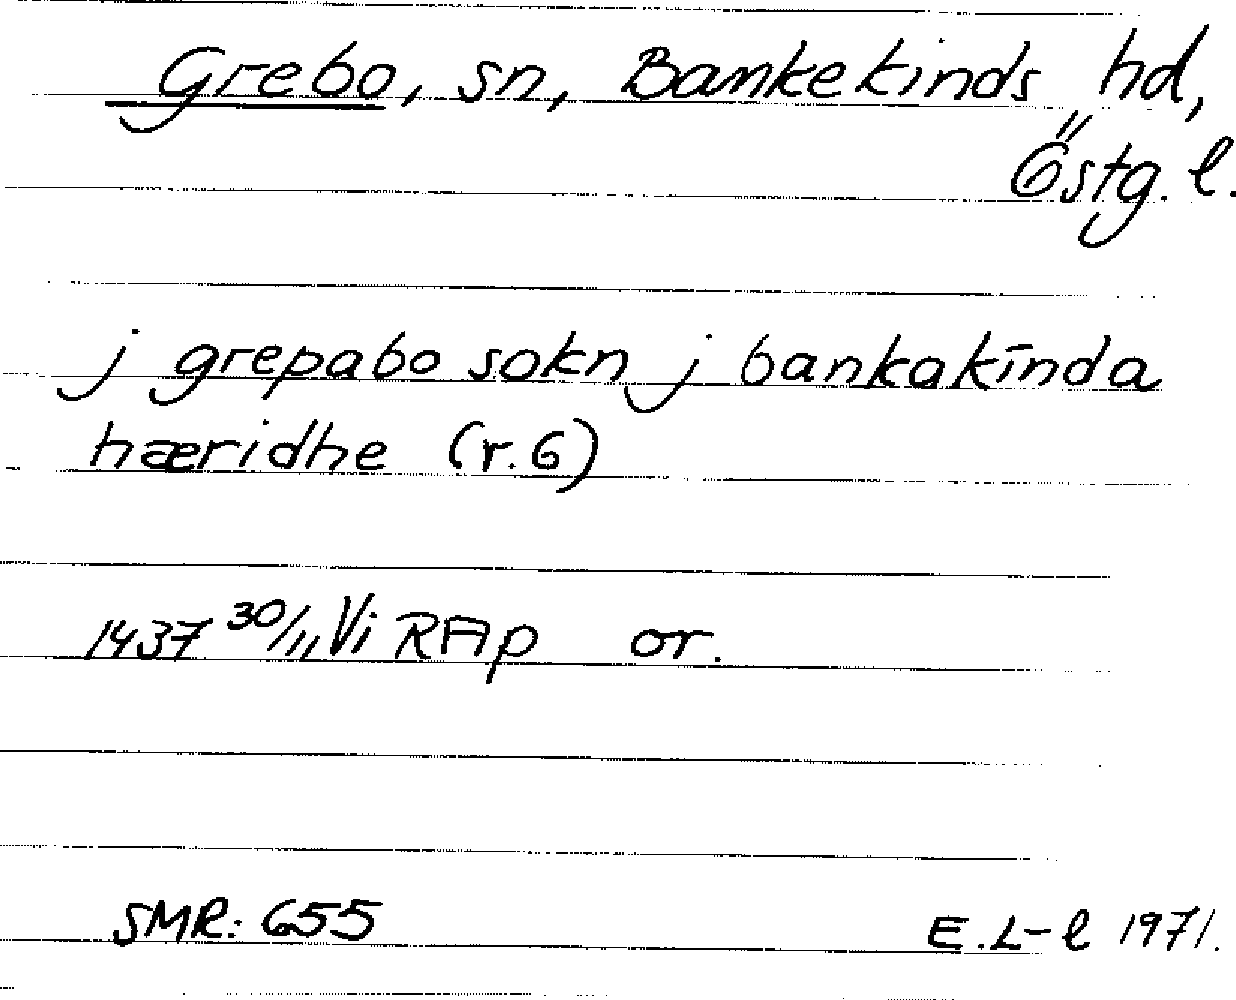 Grebo, sn, Bankekinds hd,
Östg. l.
j grepabo sokn j bankakīnda
hæridhe (r. 6)
1437 30/11 Vi RAp or.
SMR: 655 E. L-l 1971.